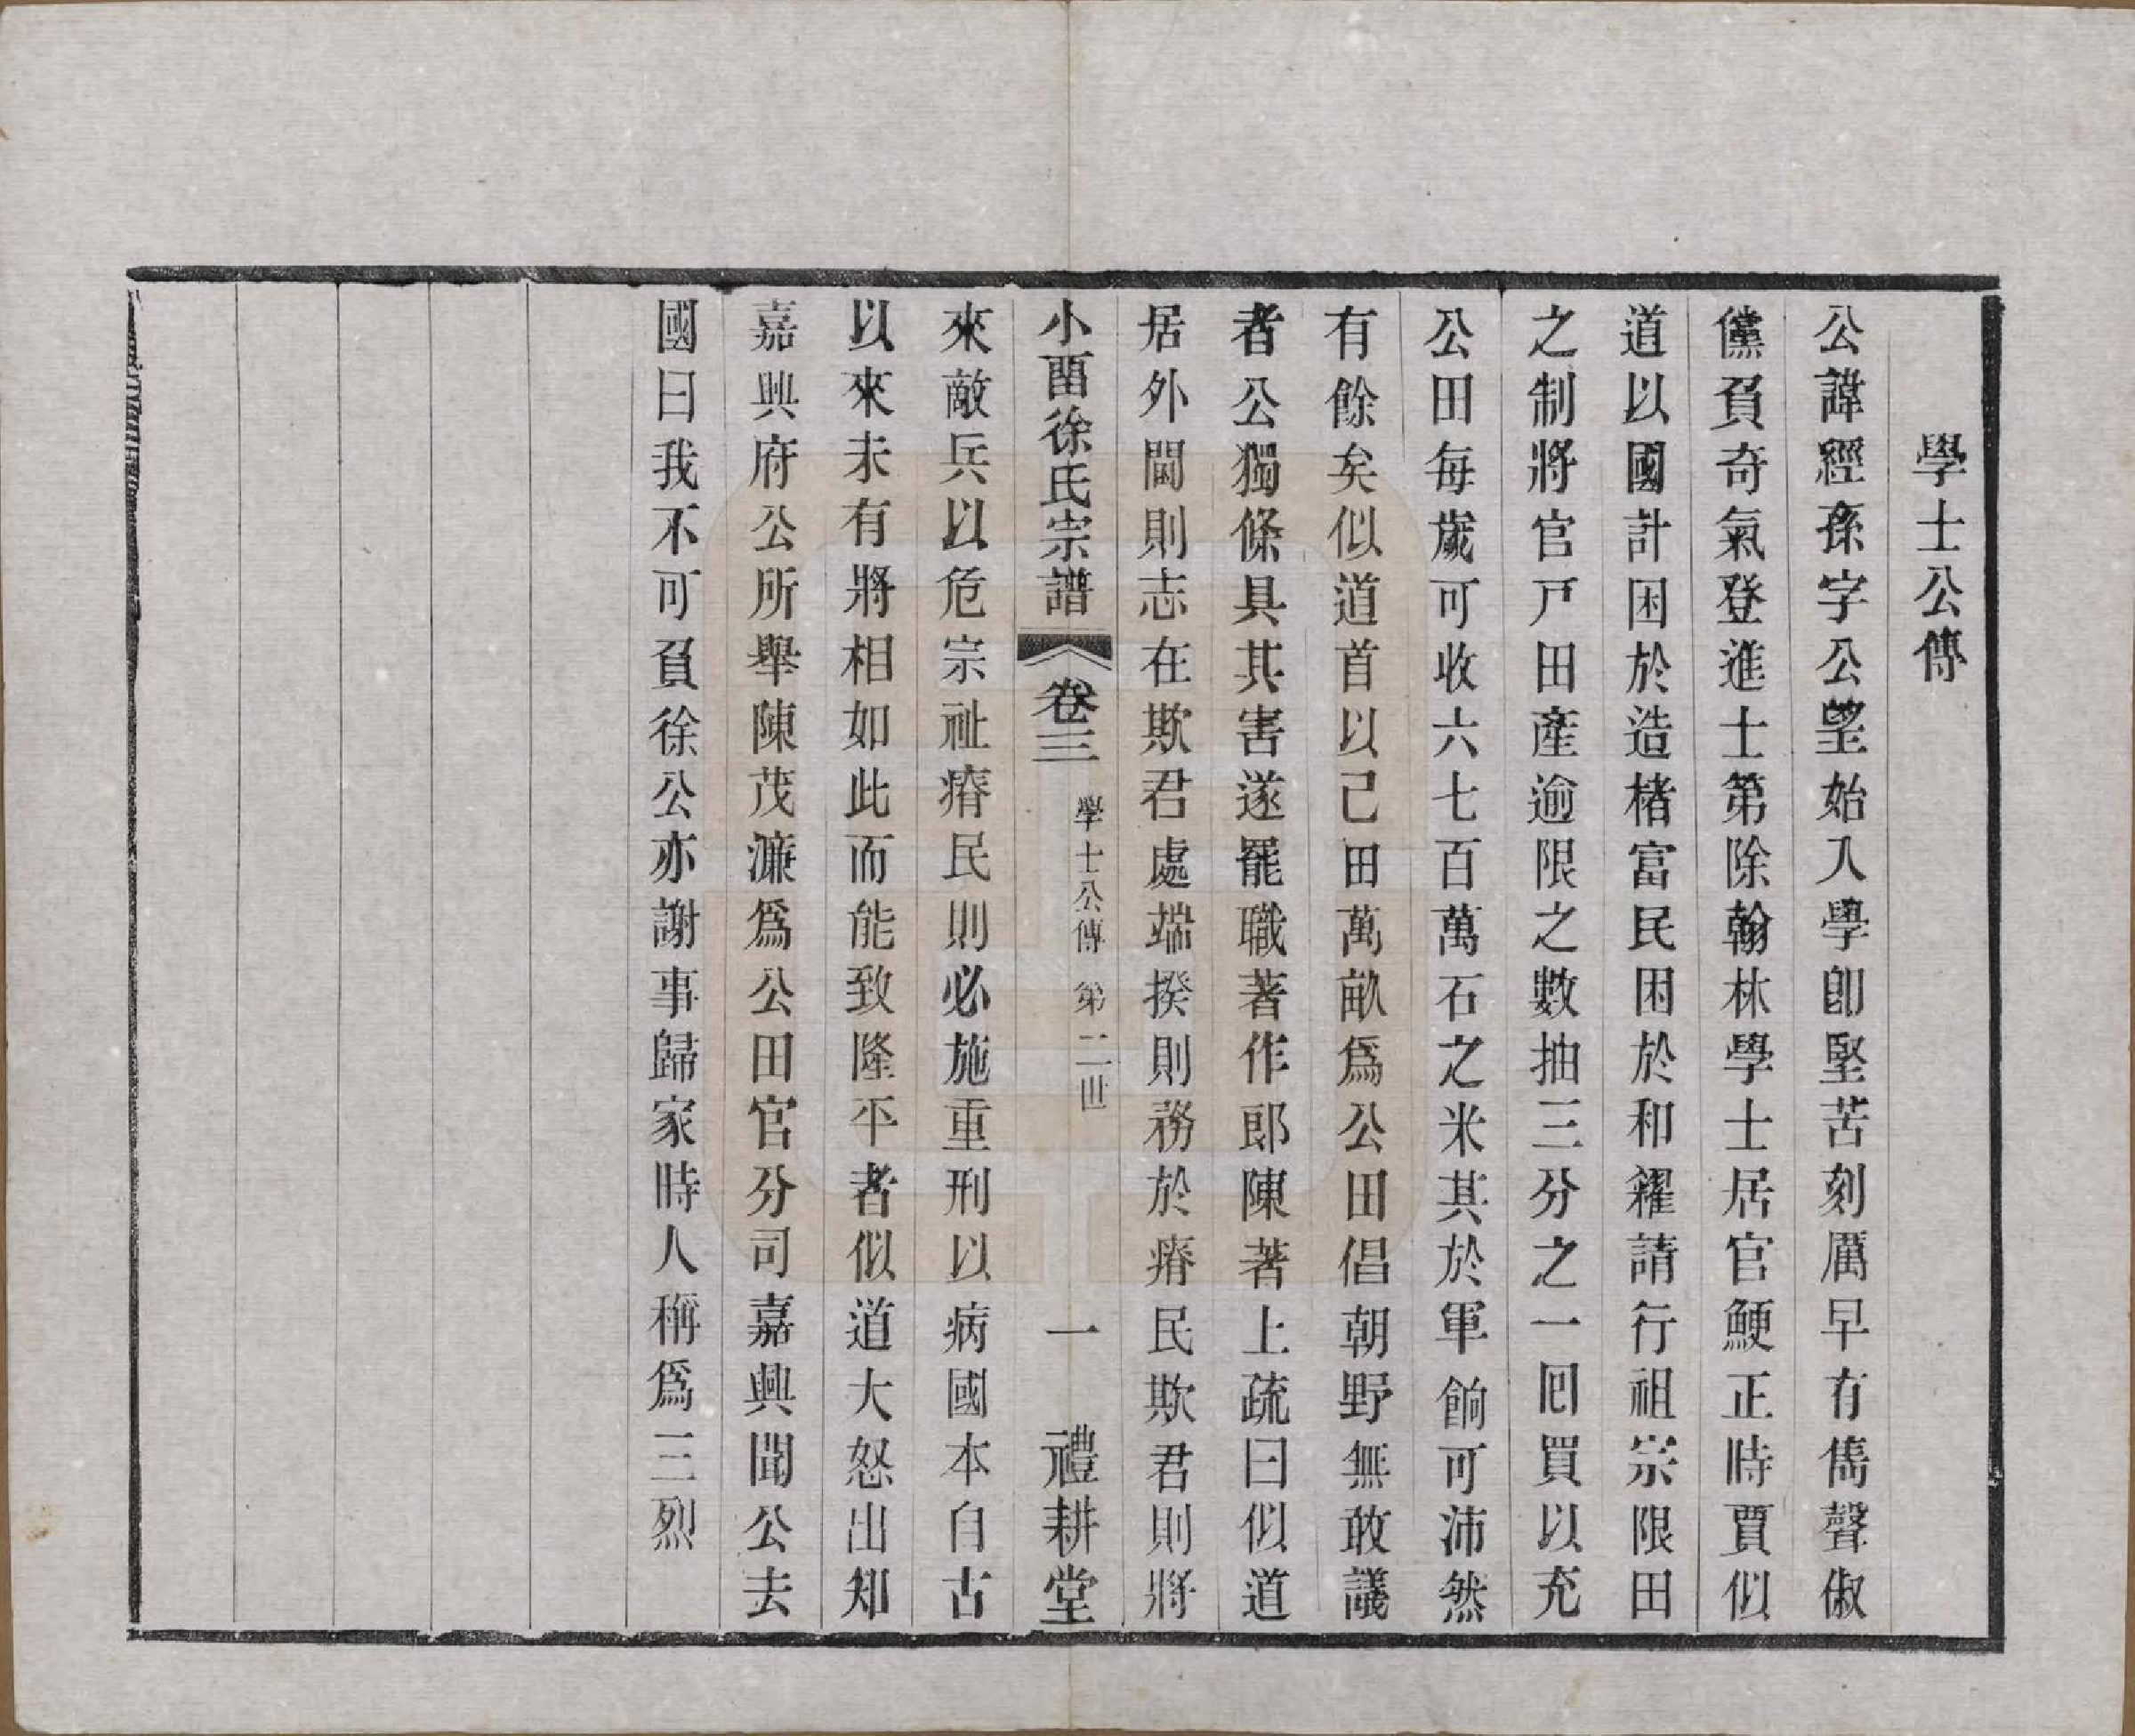 學士公傳
公諱經孫字公望始入學卽堅苦刻厲早有雋聲俶
儻負奇氣登進士第除翰林學士居官鯁正時賈似
道以國計困於造楮富民困於和糴請行祖宗限田
之制將官戸田產逾限之數抽三分之一囘買以充
公田每歲可收六七百萬石之米其於軍餉可沛然
有餘矣似道首以己田萬畝爲公田倡朝野無敢議
者公獨條具其害遂罷職著作郎陳著上疏曰似道
居外閫則志在欺君處端揆則務於瘠民欺君則將
小酉徐氏宗譜 卷三 學士公傳 第二世 一 禮耕堂
來敵兵以危宗祉瘠民則必施重刑以病國本自古
以來未有將相如此而能致隆平者似道大怒出知
嘉興府公所舉陳茂濂爲公田官分司嘉興聞公去
國曰我不可負徐公亦謝事歸家時人稱爲三烈